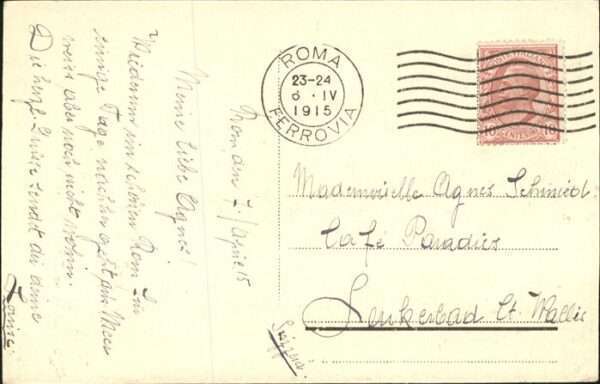 ROMA
23-24
6 · IV
1915
FERROVIA
POSTE ITALIANE
10 CENTESIMI 10
Rom den 7./April 15
Meine liebe Agnes!
Wiederum im schönen Rom. In
einige Tage nachher geht ans Meer
weiss aber noch nicht wohin.
Die herzl. Grüsse sendet dir deine
Mademoiselle Agnes Schmidt
Café Paradies
Leukerbad Ct. Wallis